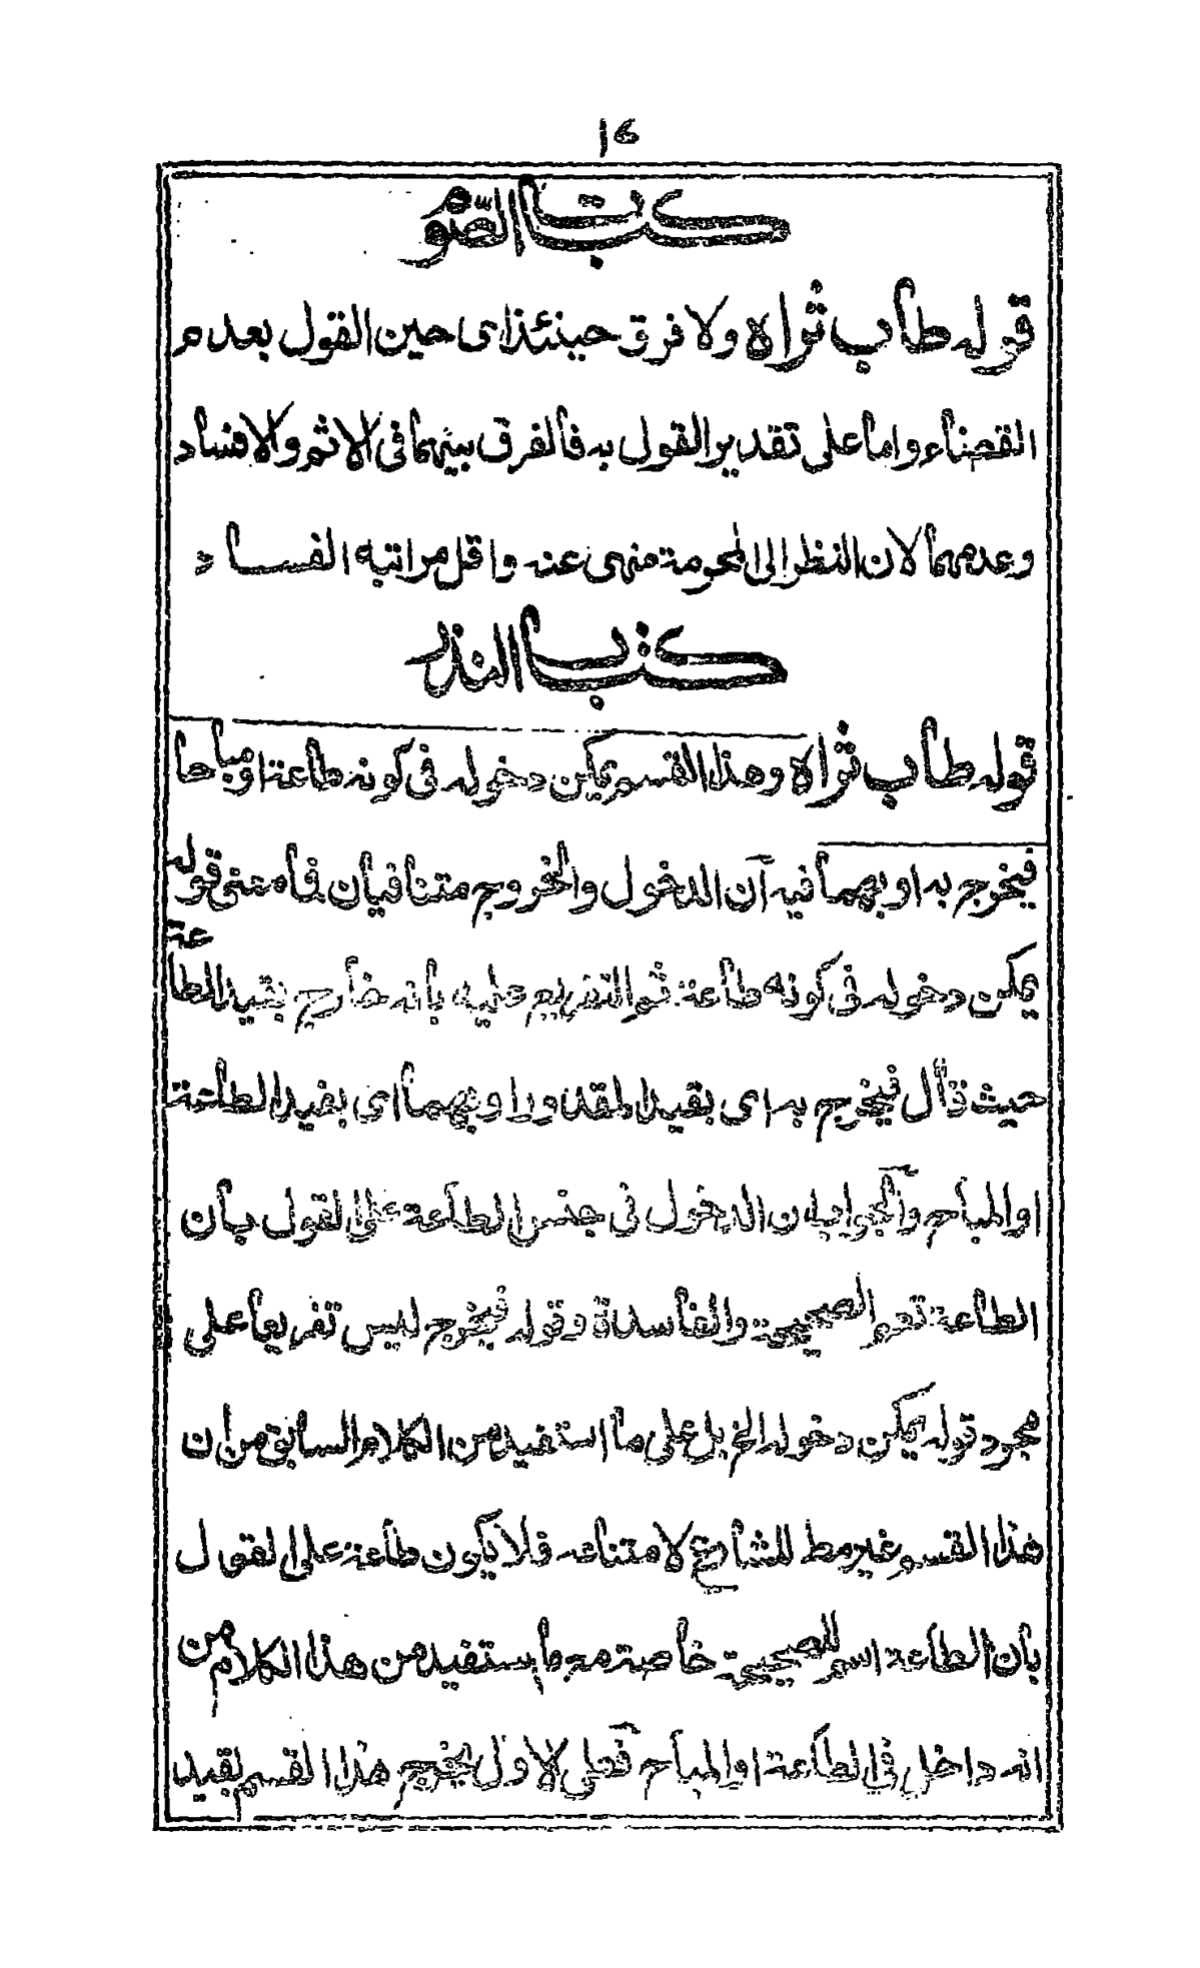 ١۴
كتاب الصوم
قوله طاب ثراه ولا فرق حينئذ اى حين القول بعدم
القضاء واما على تقدير القول به فالفرق بينهما فى الاثم والافساد
وعدمهما لان النظر الى المحرمة منهى عنه واقل مراتبه الفساد
كتاب النذر
قوله طاب ثراه وهذا القسم يمكن دخوله فى كونه طاعة او مباحا
فيخرج به او بهما فيه آن الدخول والخروج متنافيان فما معنى قوله
يمكن دخوله فى كونه طاعة ثم التفريع عليه بانه خارج بقيد الطاعة
حيث قال فيخرج به اى بقيد المقدور او بهما اى بقيد الطاعة
او المباح وآلجواب ان الدخول فى جنس الطاعة على القول بان
الطاعة تعم الصحيحة والفاسدة وقوله فيخرج ليس تفريعا على
مجرد قوله يمكن دخوله الخ بل على ما استفيد من الكلام السابق من ان
هذا القسم غير مط للشارع لامتناعه فلا يكون طاعة على القول
بان الطاعة اسم للصحيحة خاصة مع ما يستفيد من هذا الكلام من
انه داخل فى الطاعة او المباح فعلى الاول يخرج هذا القسم بقيد